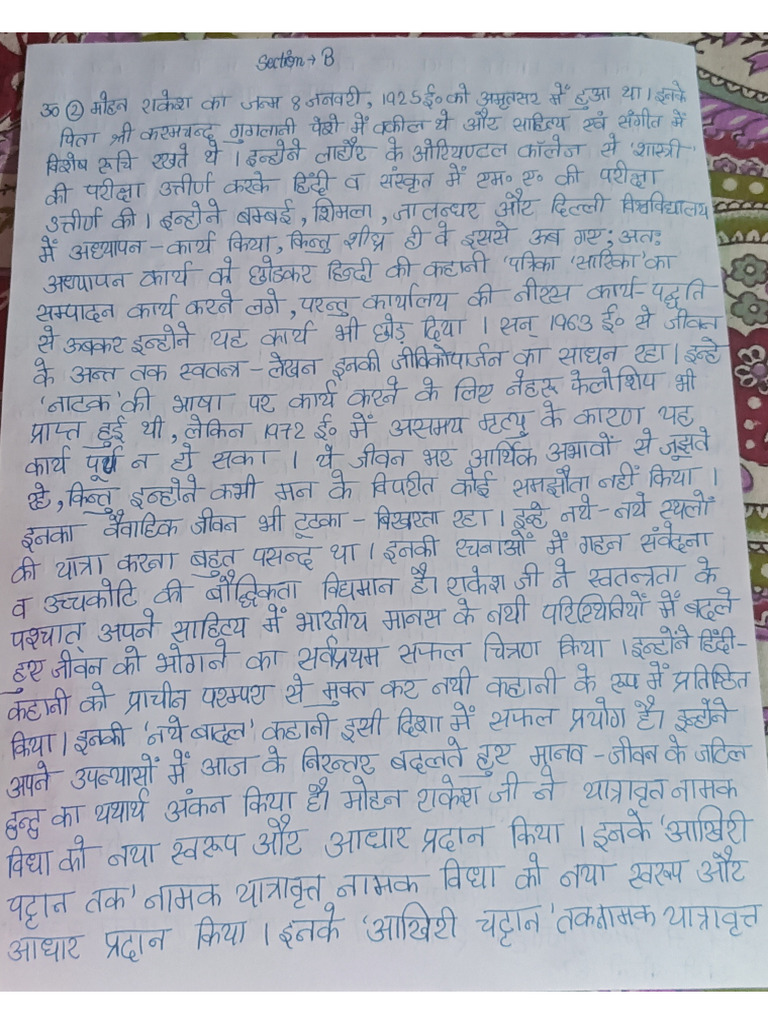 Section → B
उ० ② मोहन राकेश का जन्म 8 जनवरी, 1925 ई० को अमृतसर में हुआ था। इनके
पिता श्री करमचन्द गुगलानी पेशे में वकील थे और साहित्य एवं संगीत में
विशेष रूचि रखते थे। इन्होने लाहौर के ओरियण्टल कॉलेज से 'शास्त्री'
की परीक्षा उत्तीर्ण करके हिंदी व संस्कृत में एम० ए० की परीक्षा
उत्तीर्ण की। इन्होने बम्बई, शिमला, जालन्धर और दिल्ली विश्वविद्यालय
में अध्यापन-कार्य किया, किन्तु शीघ्र ही वे इससे ऊब गए; अतः
अध्यापन कार्य को छोडकर हिन्दी की कहानी 'पत्रिका 'सारिका' का
सम्पादन कार्य करने लगे, परन्तु कार्यालय की नीरस कार्य-पद्धति
से ऊबकर इन्होने यह कार्य भी छोड़ दिया। सन् 1963 ई० से जीवन
के अन्त तक स्वतन्त्र-लेखन इनकी जीविकोपार्जन का साधन रहा। इन्हे
'नाटक' की भाषा पर कार्य करने के लिए नेहरू फेलोशिप भी
प्राप्त हुई थी, लेकिन 1972 ई० में असमय मृत्यु के कारण यह
कार्य पूर्ण न हो सका। ये जीवन भर आर्थिक अभावों से जूझते
रहे, किन्तु इन्होने कभी मन के विपरीत कोई समझौता नहीं किया।
इनका वैवाहिक जीवन भी टूटका-बिखरता रहा। इन्हे नये-नये स्थलों
की यात्रा करना बहुत पसन्द था। इनकी रचनाओं में गहन संवेदना
व उच्चकोटि की बौद्धिकता विद्यमान है। राकेश जी ने स्वतन्त्रता के
पश्चात् अपने साहित्य में भारतीय मानस के नयी परिस्थितियों में बदले
हुए जीवन को भोगने का सर्वप्रथम सफल चित्रण किया। इन्होंने हिंदी-
कहानी को प्राचीन परम्परा से मुक्त कर नयी कहानी के रूप में प्रतिष्ठित
किया। इनकी 'नये बादल' कहानी इसी दिशा में सफल प्रयोग है। इन्होंने
अपने उपन्यासों में आज के निरन्तर बदलते हुए मानव-जीवन के जटिल
द्वन्द्व का यथार्थ अंकन किया है। मोहन राकेश जी ने यात्रावृत नामक
विधा को नया स्वरूप और आधार प्रदान किया। इनके 'आखिरी
चट्टान तक' नामक यात्रावृत्त नामक विधा को नया स्वरूप और
आधार प्रदान किया। इनके 'आखिरी चट्टान' तक नामक यात्रावृत्त